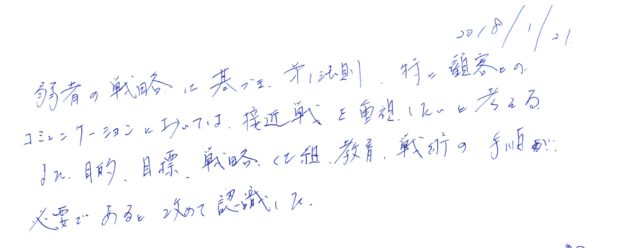 2018/1/21
弱者の戦略に基づき、第1法則、特に顧客との
コミュニケーションにおいては、接近戦を重視したいと考える
また、目的、目標、戦略、仕組、教育、戦術の手順が、
必要であると改めて認識した。